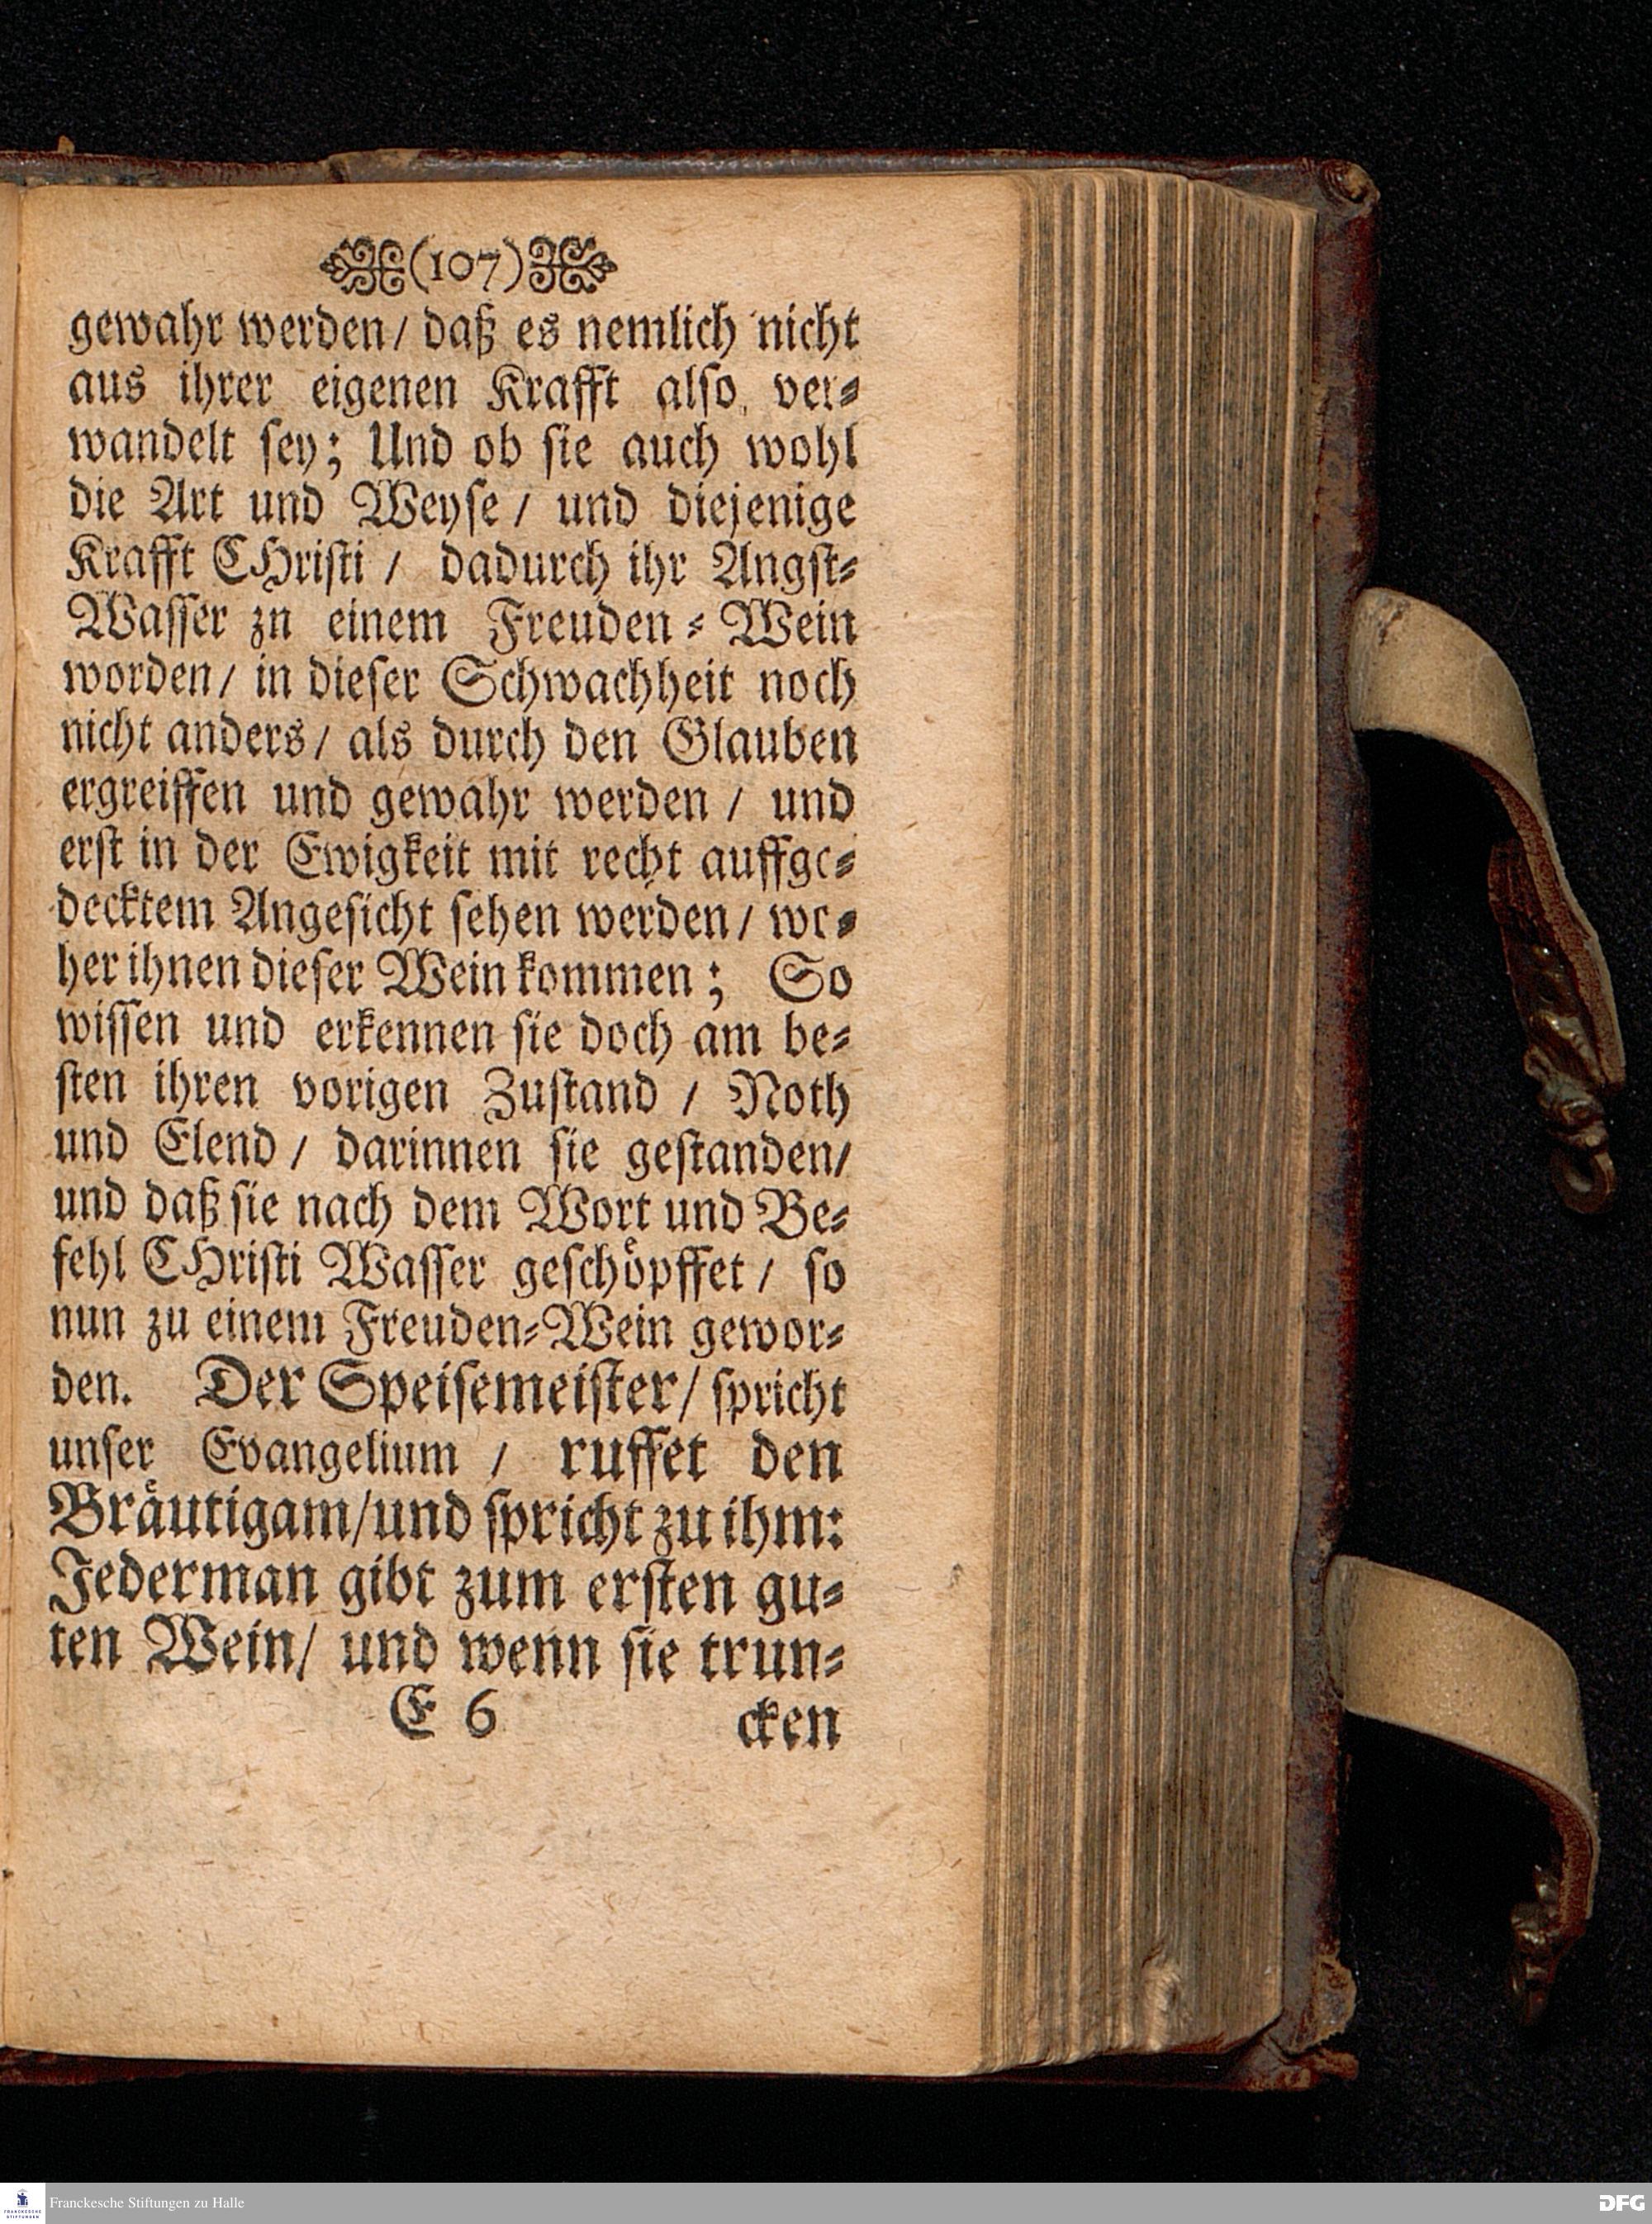 (107)
gewahr werden/ daß es nemlich nicht
aus ihrer eigenen Krafft also ver⸗
wandelt sey; Und ob sie auch wohl
die Art und Weyse / und diejenige
Krafft CHristi / dadurch ihr Angst⸗
Wasser zn einem Freuden ⸗ Wein
worden/ in dieser Schwachheit noch
nicht anders/ als durch den Glauben
ergreiffen und gewahr werden / und
erst in der Ewigkeit mit recht auffge⸗
decktem Angesicht sehen werden/ wo⸗
her ihnen dieser Wein kommen; So
wissen und erkennen sie doch am be⸗
sten ihren vorigen Zustand / Noth
und Elend / darinnen sie gestanden/
und daß sie nach dem Wort und Be⸗
fehl CHristi Wasser geschöpffet / so
nun zu einem Freuden⸗Wein gewor⸗
den. Der Speisemeister/ spricht
unser Evangelium / ruffet den
Bräutigam/und spricht zu ihm:
Jederman gibt zum ersten gu⸗
ten Wein/ und wenn sie trun⸗
E 6 cken
FRANCKESCHE STIFTUNGEN
Franckesche Stiftungen zu Halle
DFG